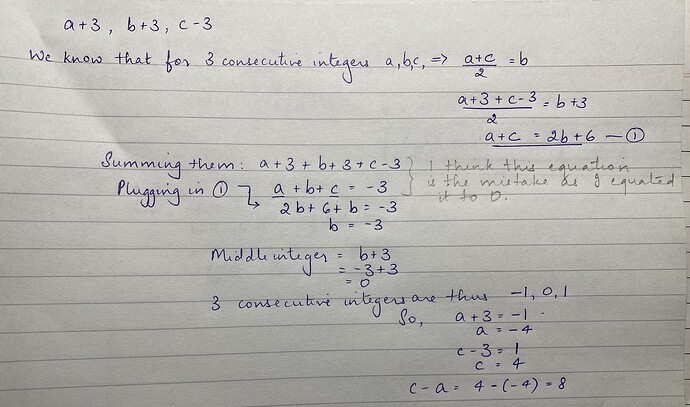 a+3 , b+3 , c-3
We know that for 3 consecutive integers a,b,c, => (a+c)/2 = b
(a+3+c-3)/2 = b+3
a+c = 2b+6 — ①
Summing them: a+3+b+3+c-3 } I think this equation
Plugging in ① a+b+c = -3 is the mistake as I equated
2b+6+b = -3 it to 0.
b = -3
Middle integer = b+3
= -3+3
= 0
3 consecutive integers are thus -1, 0, 1
So, a+3 = -1
a = -4
c-3 = 1
c = 4
c-a = 4-(-4) = 8